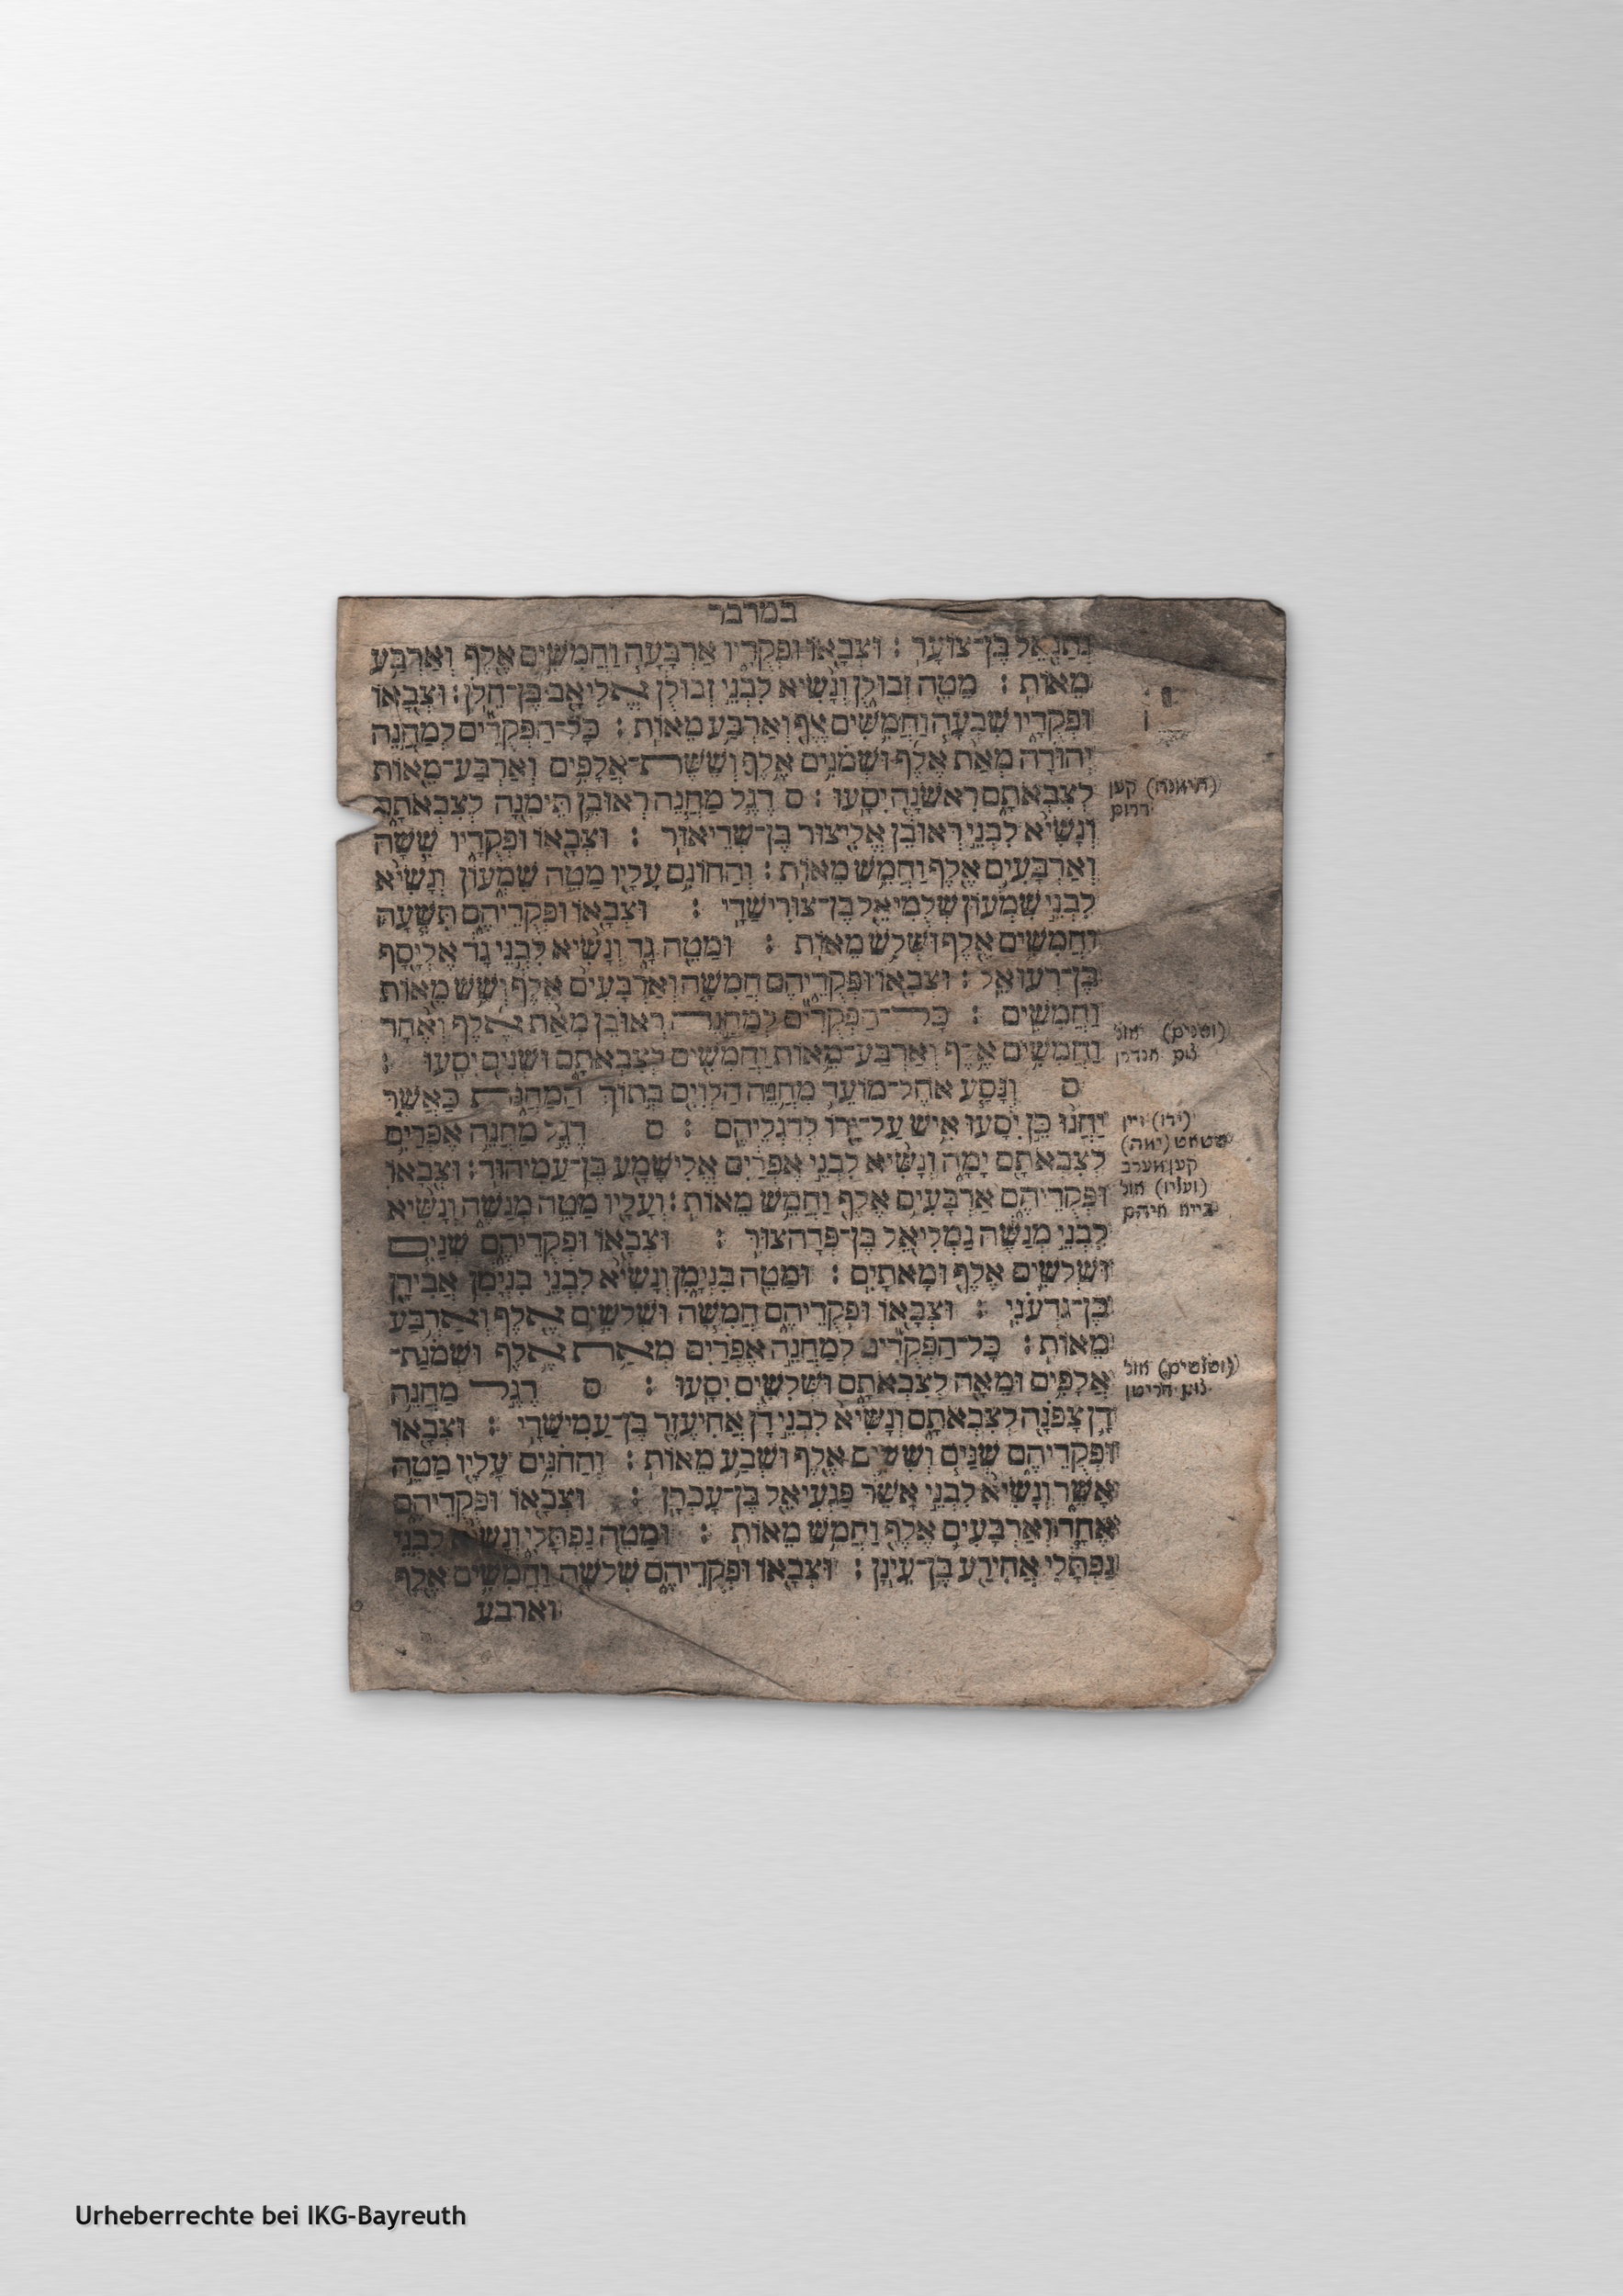 במדבר
נְתַנְאֵל בֶּן־צוּעָר׃ וּצְבָאוֹ וּפְקֻדָיו אַרְבָּעָה וַחֲמִשִּׁים אֶלֶף וְאַרְבַּע
מֵאוֹת׃ מַטֵּה זְבוּלֻן וְנָשִׂיא לִבְנֵי זְבוּלֻן אֱלִיאָב בֶּן־חֵלֹן׃ וּצְבָאוֹ
וּפְקֻדָיו שִׁבְעָה וַחֲמִשִּׁים אֶלֶף וְאַרְבַּע מֵאוֹת׃ כָּל־הַפְּקֻדִים לְמַחֲנֵה
יְהוּדָה מְאַת אֶלֶף וּשְׁמֹנִים אֶלֶף וְשֵׁשֶׁת־אֲלָפִים וְאַרְבַּע־מֵאוֹת
לְצִבְאֹתָם רִאשֹׁנָה יִסָּעוּ׃ ס דֶּגֶל מַחֲנֵה רְאוּבֵן תֵּימָנָה לְצִבְאֹתָם
וְנָשִׂיא לִבְנֵי רְאוּבֵן אֱלִיצוּר בֶּן־שְׁדֵיאוּר׃ וּצְבָאוֹ וּפְקֻדָיו שִׁשָּׁה
וְאַרְבָּעִים אֶלֶף וַחֲמֵשׁ מֵאוֹת׃ וְהַחוֹנִם עָלָיו מַטֵּה שִׁמְעוֹן וְנָשִׂיא
לִבְנֵי שִׁמְעוֹן שְׁלֻמִיאֵל בֶּן־צוּרִישַׁדָּי׃ וּצְבָאוֹ וּפְקֻדֵיהֶם תִּשְׁעָה
וַחֲמִשִּׁים אֶלֶף וּשְׁלֹשׁ מֵאוֹת׃ וּמַטֵּה גָד וְנָשִׂיא לִבְנֵי גָד אֶלְיָסָף
בֶּן־רְעוּאֵל׃ וּצְבָאוֹ וּפְקֻדֵיהֶם חֲמִשָּׁה וְאַרְבָּעִים אֶלֶף וְשֵׁשׁ מֵאוֹת
וַחֲמִשִּׁים׃ כָּל־הַפְּקֻדִים לְמַחֲנֵה רְאוּבֵן מְאַת אֶלֶף וְאֶחָד
וַחֲמִשִּׁים אֶלֶף וְאַרְבַּע־מֵאוֹת וַחֲמִשִּׁים לְצִבְאֹתָם וּשְׁנִיִּם יִסָּעוּ׃
ס וְנָסַע אֹהֶל־מוֹעֵד מַחֲנֵה הַלְוִיִּם בְּתוֹךְ הַמַּחֲנֹת כַּאֲשֶׁר
יַחֲנוּ כֵּן יִסָּעוּ אִישׁ עַל־יָדוֹ לְדִגְלֵיהֶם׃ ס דֶּגֶל מַחֲנֵה אֶפְרַיִם
לְצִבְאֹתָם יָמָּה וְנָשִׂיא לִבְנֵי אֶפְרַיִם אֱלִישָׁמָע בֶּן־עַמִּיהוּד׃ וּצְבָאוֹ
וּפְקֻדֵיהֶם אַרְבָּעִים אֶלֶף וַחֲמֵשׁ מֵאוֹת׃ וְעָלָיו מַטֵּה מְנַשֶּׁה וְנָשִׂיא
לִבְנֵי מְנַשֶּׁה גַּמְלִיאֵל בֶּן־פְּדָהצוּר׃ וּצְבָאוֹ וּפְקֻדֵיהֶם שְׁנַיִם
וּשְׁלֹשִׁים אֶלֶף וּמָאתָיִם׃ וּמַטֵּה בִּנְיָמִן וְנָשִׂיא לִבְנֵי בִנְיָמִן אֲבִידָן
בֶּן־גִּדְעֹנִי׃ וּצְבָאוֹ וּפְקֻדֵיהֶם חֲמִשָּׁה וּשְׁלֹשִׁים אֶלֶף וְאַרְבַּע
מֵאוֹת׃ כָּל־הַפְּקֻדִים לְמַחֲנֵה אֶפְרַיִם מְאַת אֶלֶף וּשְׁמֹנַת־
אֲלָפִים וּמֵאָה לְצִבְאֹתָם וּשְׁלִשִׁים יִסָּעוּ׃ ס דֶּגֶל מַחֲנֵה
דָן צָפֹנָה לְצִבְאֹתָם וְנָשִׂיא לִבְנֵי דָן אֲחִיעֶזֶר בֶּן־עַמִּישַׁדָּי׃ וּצְבָאוֹ
וּפְקֻדֵיהֶם שְׁנַיִם וְשִׁשִּׁים אֶלֶף וּשְׁבַע מֵאוֹת׃ וְהַחֹנִים עָלָיו מַטֵּה
אָשֵׁר וְנָשִׂיא לִבְנֵי אָשֵׁר פַּגְעִיאֵל בֶּן־עָכְרָן׃ וּצְבָאוֹ וּפְקֻדֵיהֶם
אֶחָד וְאַרְבָּעִים אֶלֶף וַחֲמֵשׁ מֵאוֹת׃ וּמַטֵּה נַפְתָּלִי וְנָשִׂיא לִבְנֵי
נַפְתָּלִי אֲחִירַע בֶּן־עֵינָן׃ וּצְבָאוֹ וּפְקֻדֵיהֶם שְׁלֹשָׁה וַחֲמִשִּׁים אֶלֶף
וארבע
(תימנה) קען
דרום
(ושנים) אול
צום אנדרן
(ידו) זיין
שטאט (ימה)
קען מערב
(ועליו) אול
בייא איהם
(ושלשים) אול
צום דריטן
Urheberrechte bei IKG-Bayreuth